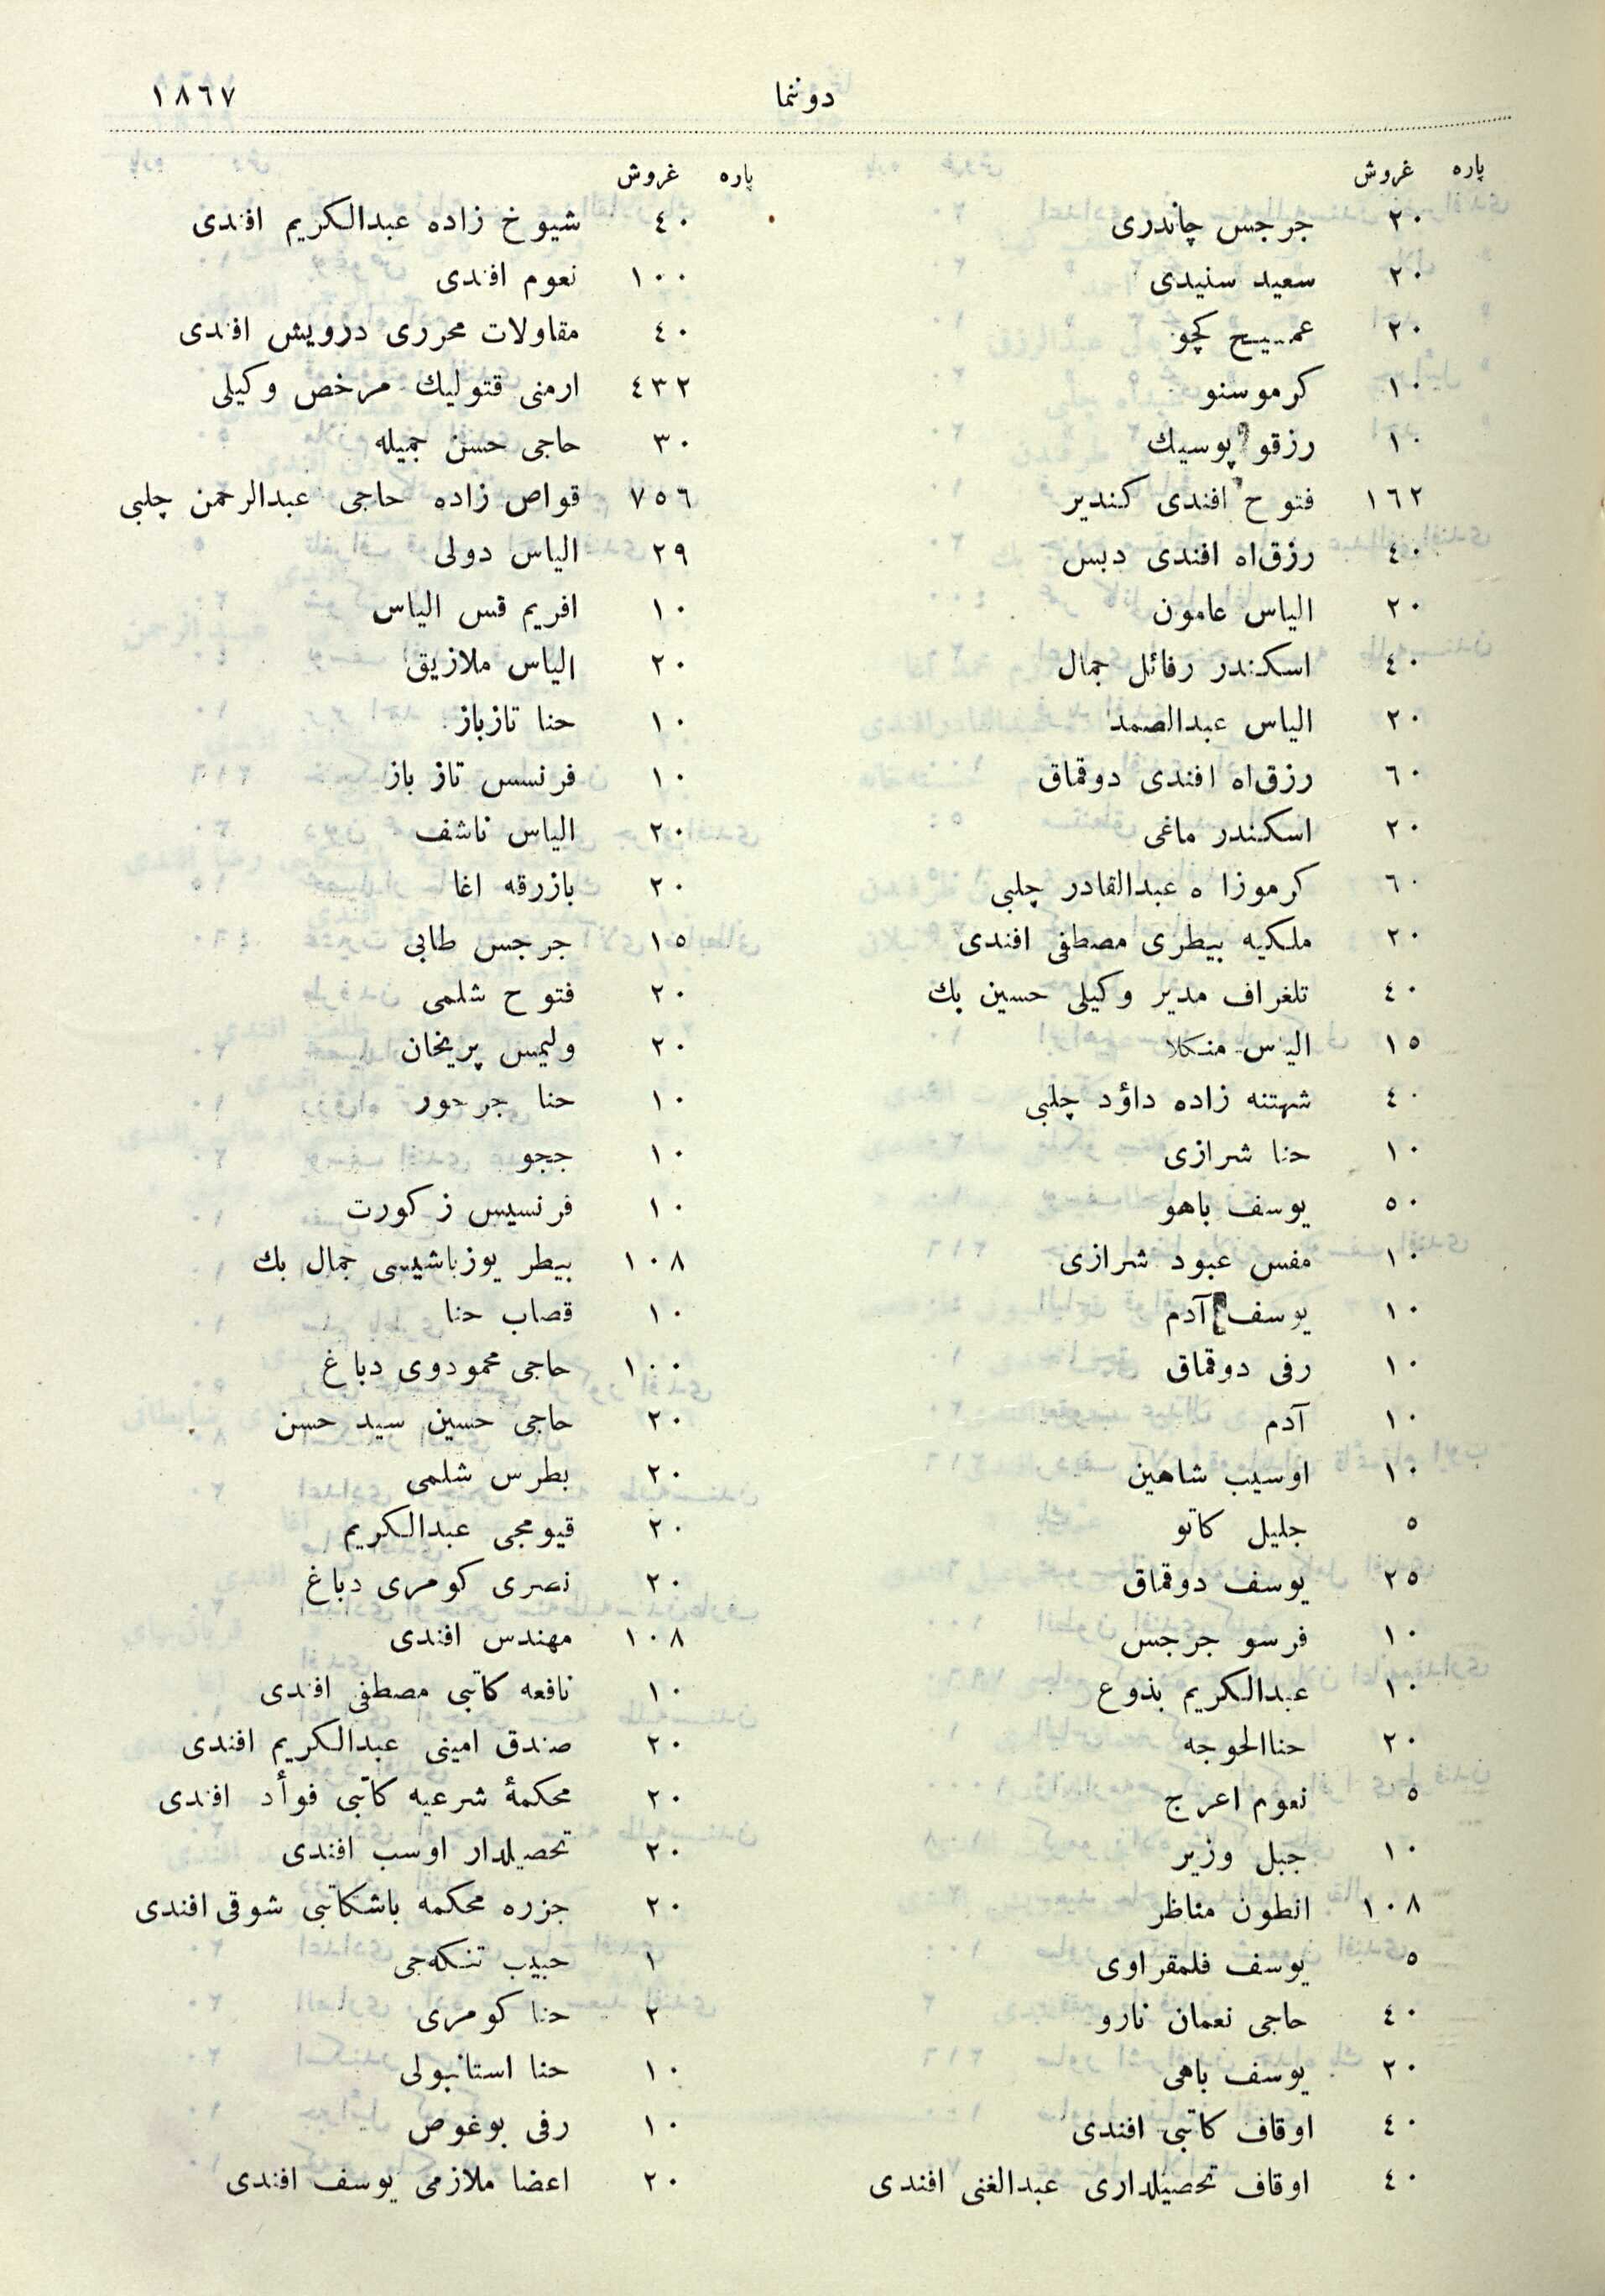 دوننما ١٨٦٧
پاره غروش
٢٠ جرجس چاندری
٢٠ سعید سنیدی
٢٠ عمسیح کچو
١٠ کرموسنو
١٠ رزقو پوسیك
١٦٢ فتوح افندی کندیر
٤٠ رزق‌اه افندی دبس
٢٠ الیاس عامون
٤٠ اسکندر رفائل جمال
٢٠ الیاس عبدالصمد
٦٠ رزق‌اه افندی دوقماق
٢٠ اسکندر ماغی
٦٠ کرموزا ه عبدالقادر چلبی
٢٠ ملکیه بیطری مصطفی افندی
٤٠ تلغراف مدیر وکیلی حسین بك
١٥ الیاس منکلا
٤٠ شهتنه زاده داؤد چلبی
١٠ حنا شرازی
٥٠ یوسف باهو
١٠ مفس عبود شرازی
١٠ یوسف آدم
١٠ رفی دوقماق
١٠ آدم
١٠ اوسیب شاهین
٥ جلیل کاتو
٢٥ یوسف دوقماق
١٠ فرسو جرجس
١٠ عبدالکریم بذوع
٢٠ حناالحوجه
٥ نعوم اعرج
١٠ جبل وزیر
١٠٨ انطون مناظر
٥ یوسف فلمقراوی
٤٠ حاجی نعمان نارو
٢٠ یوسف باهی
٤٠ اوقاف کاتبی افندی
٤٠ اوقاف تحصیلداری عبدالغنی افندی
پاره غروش
٤٠ شیوخ زاده عبدالکریم افندی
١٠٠ نعوم افندی
٤٠ مقاولات محرری درویش افندی
٤٣٢ ارمنی قتولیك مرخص وکیلی
٣٠ حاجی حسن جمیله
٧٥٦ قواص زاده حاجی عبدالرحمن چلبی
٢٩ الیاس دولی
١٠ افریم قس الیاس
٢٠ الیاس ملازیق
١٠ حنا تازباز
١٠ فرنسس تاز باز
٢٠ الیاس ناشف
٢٠ بازرقه اغا
١٥ جرجس طابی
٢٠ فتوح شلمی
٢٠ ولیمس پریخان
١٠ حنا جرحور
١٠ ججو
١٠ فرنسیس زکورت
١٠٨ بیطر یوزباشیسی جمال بك
١٠ قصاب حنا
١٠٠ حاجی محمودوی دباغ
٢٠ حاجی حسین سید حسن
٢٠ بطرس شلمی
٢٠ قیومجی عبدالکریم
٢٠ نصری کومری دباغ
١٠٨ مهندس افندی
١٠ نافعه کاتبی مصطفی افندی
٢٠ صندق امینی عبدالکریم افندی
٢٠ محکمهٔ شرعیه کاتبی فوأد افندی
٢٠ تحصیلدار اوسب افندی
٢٠ جزره محکمه باشکاتبی شوقی افندی
١ حبیب تنکه‌جی
٢ حنا کومری
١٠ حنا استانبولی
١٠ رفی بوغوص
٢٠ اعضا ملازمی یوسف افندی